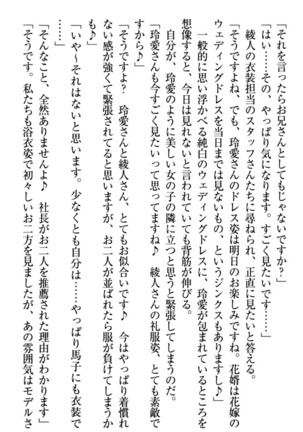 「それを言ったらお兄さんとしてじゃないですか?」
「はい……その、やっぱり気になります。すごく見たいです……」
　綾人の衣装担当のスタッフさんたちに尋ねられ、正直に見たいと答える。
「そうですよね、でも、玲愛さんのドレス姿は明日のお楽しみですね。花婿は花嫁の
ウェディングドレスを当日までは見ないもの、というジンクスもありますし♪」
　一般的に思い浮かべる純白のウェディングドレスに、玲愛が包まれているところを
想像すると、今日は見れないと言われていても背筋が伸びる。
　自分が、玲愛のように美しい女の子の隣に立つと思うと緊張してしまうのだ。
「玲愛さんも今すごく見たいって思ってますね♪　綾人さんの礼服姿、とても素敵で
すから♪」
「そうですよ?　玲愛さんと綾人さん、とてもお似合いです♪　今はやっぱり着慣れ
ない感が強くて緊張されてると思いますが、お二人が並ばれたら服が負けてしまうか
も♪」
「いや～それはないと思います。少なくとも自分は……やっぱり馬子にも衣装で
「そんなこと、全然ありませんよ♪　社長がお二人を推薦された理由がわかります」
「そうです。私たちも浴衣姿で初々しいお二方を見ましたが、あの雰囲気はモデルさ